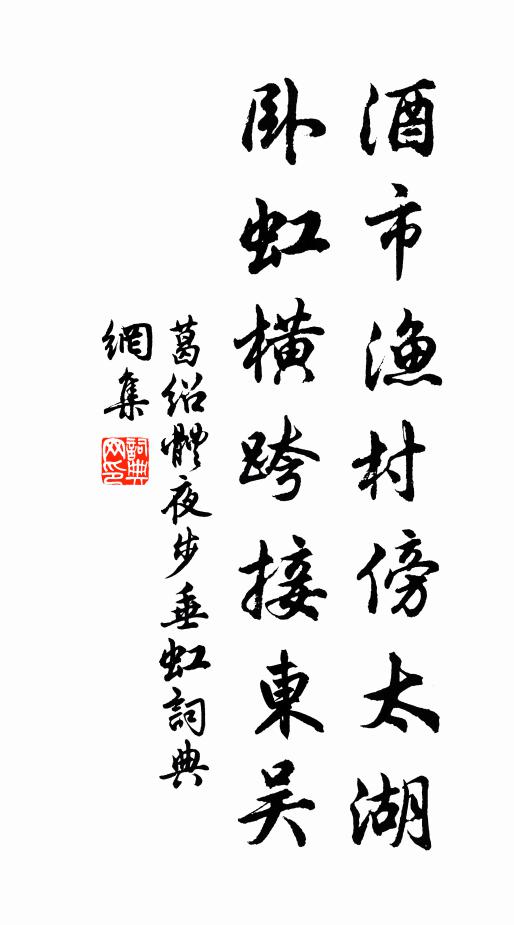 酒市漁村傍太湖
臥虹橫跨接東吴
葛紹體夜步垂虹詞典
網集
詞典網印